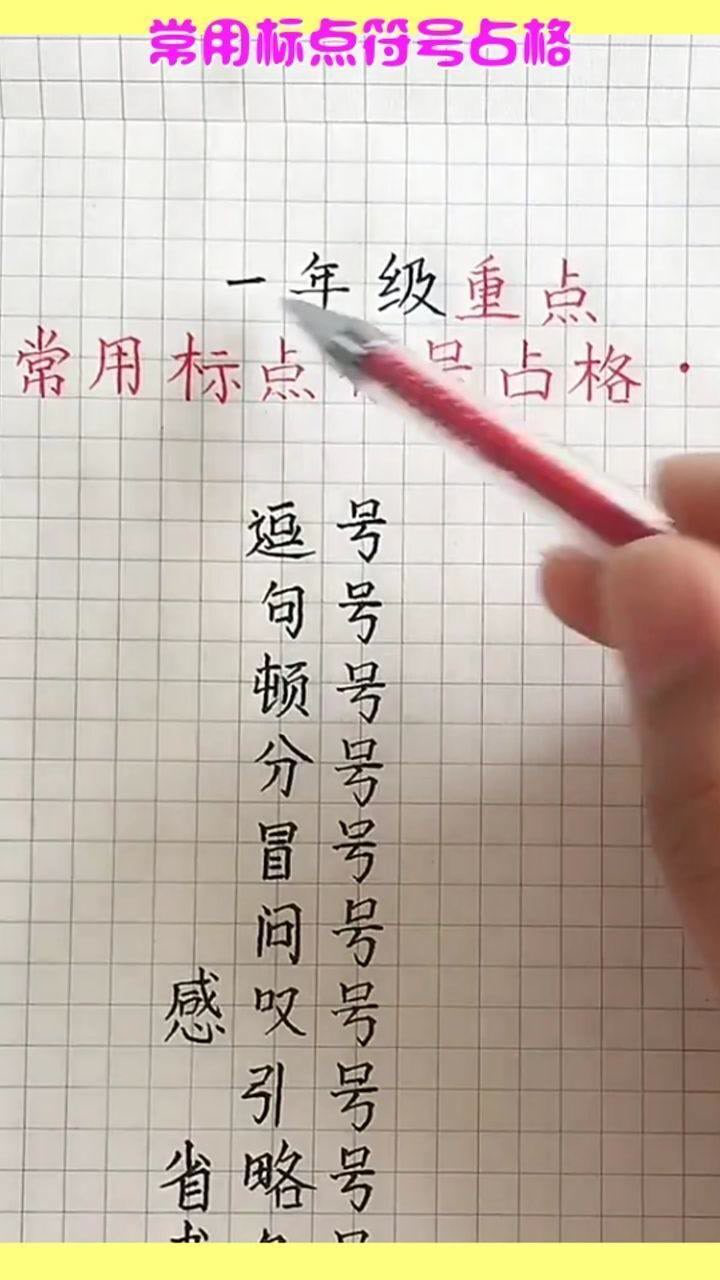 常用标点符号占格
一年级重点
常用标点符号占格·
逗号
句号
顿号
分号
冒号
问号
感叹号
引号
省略号